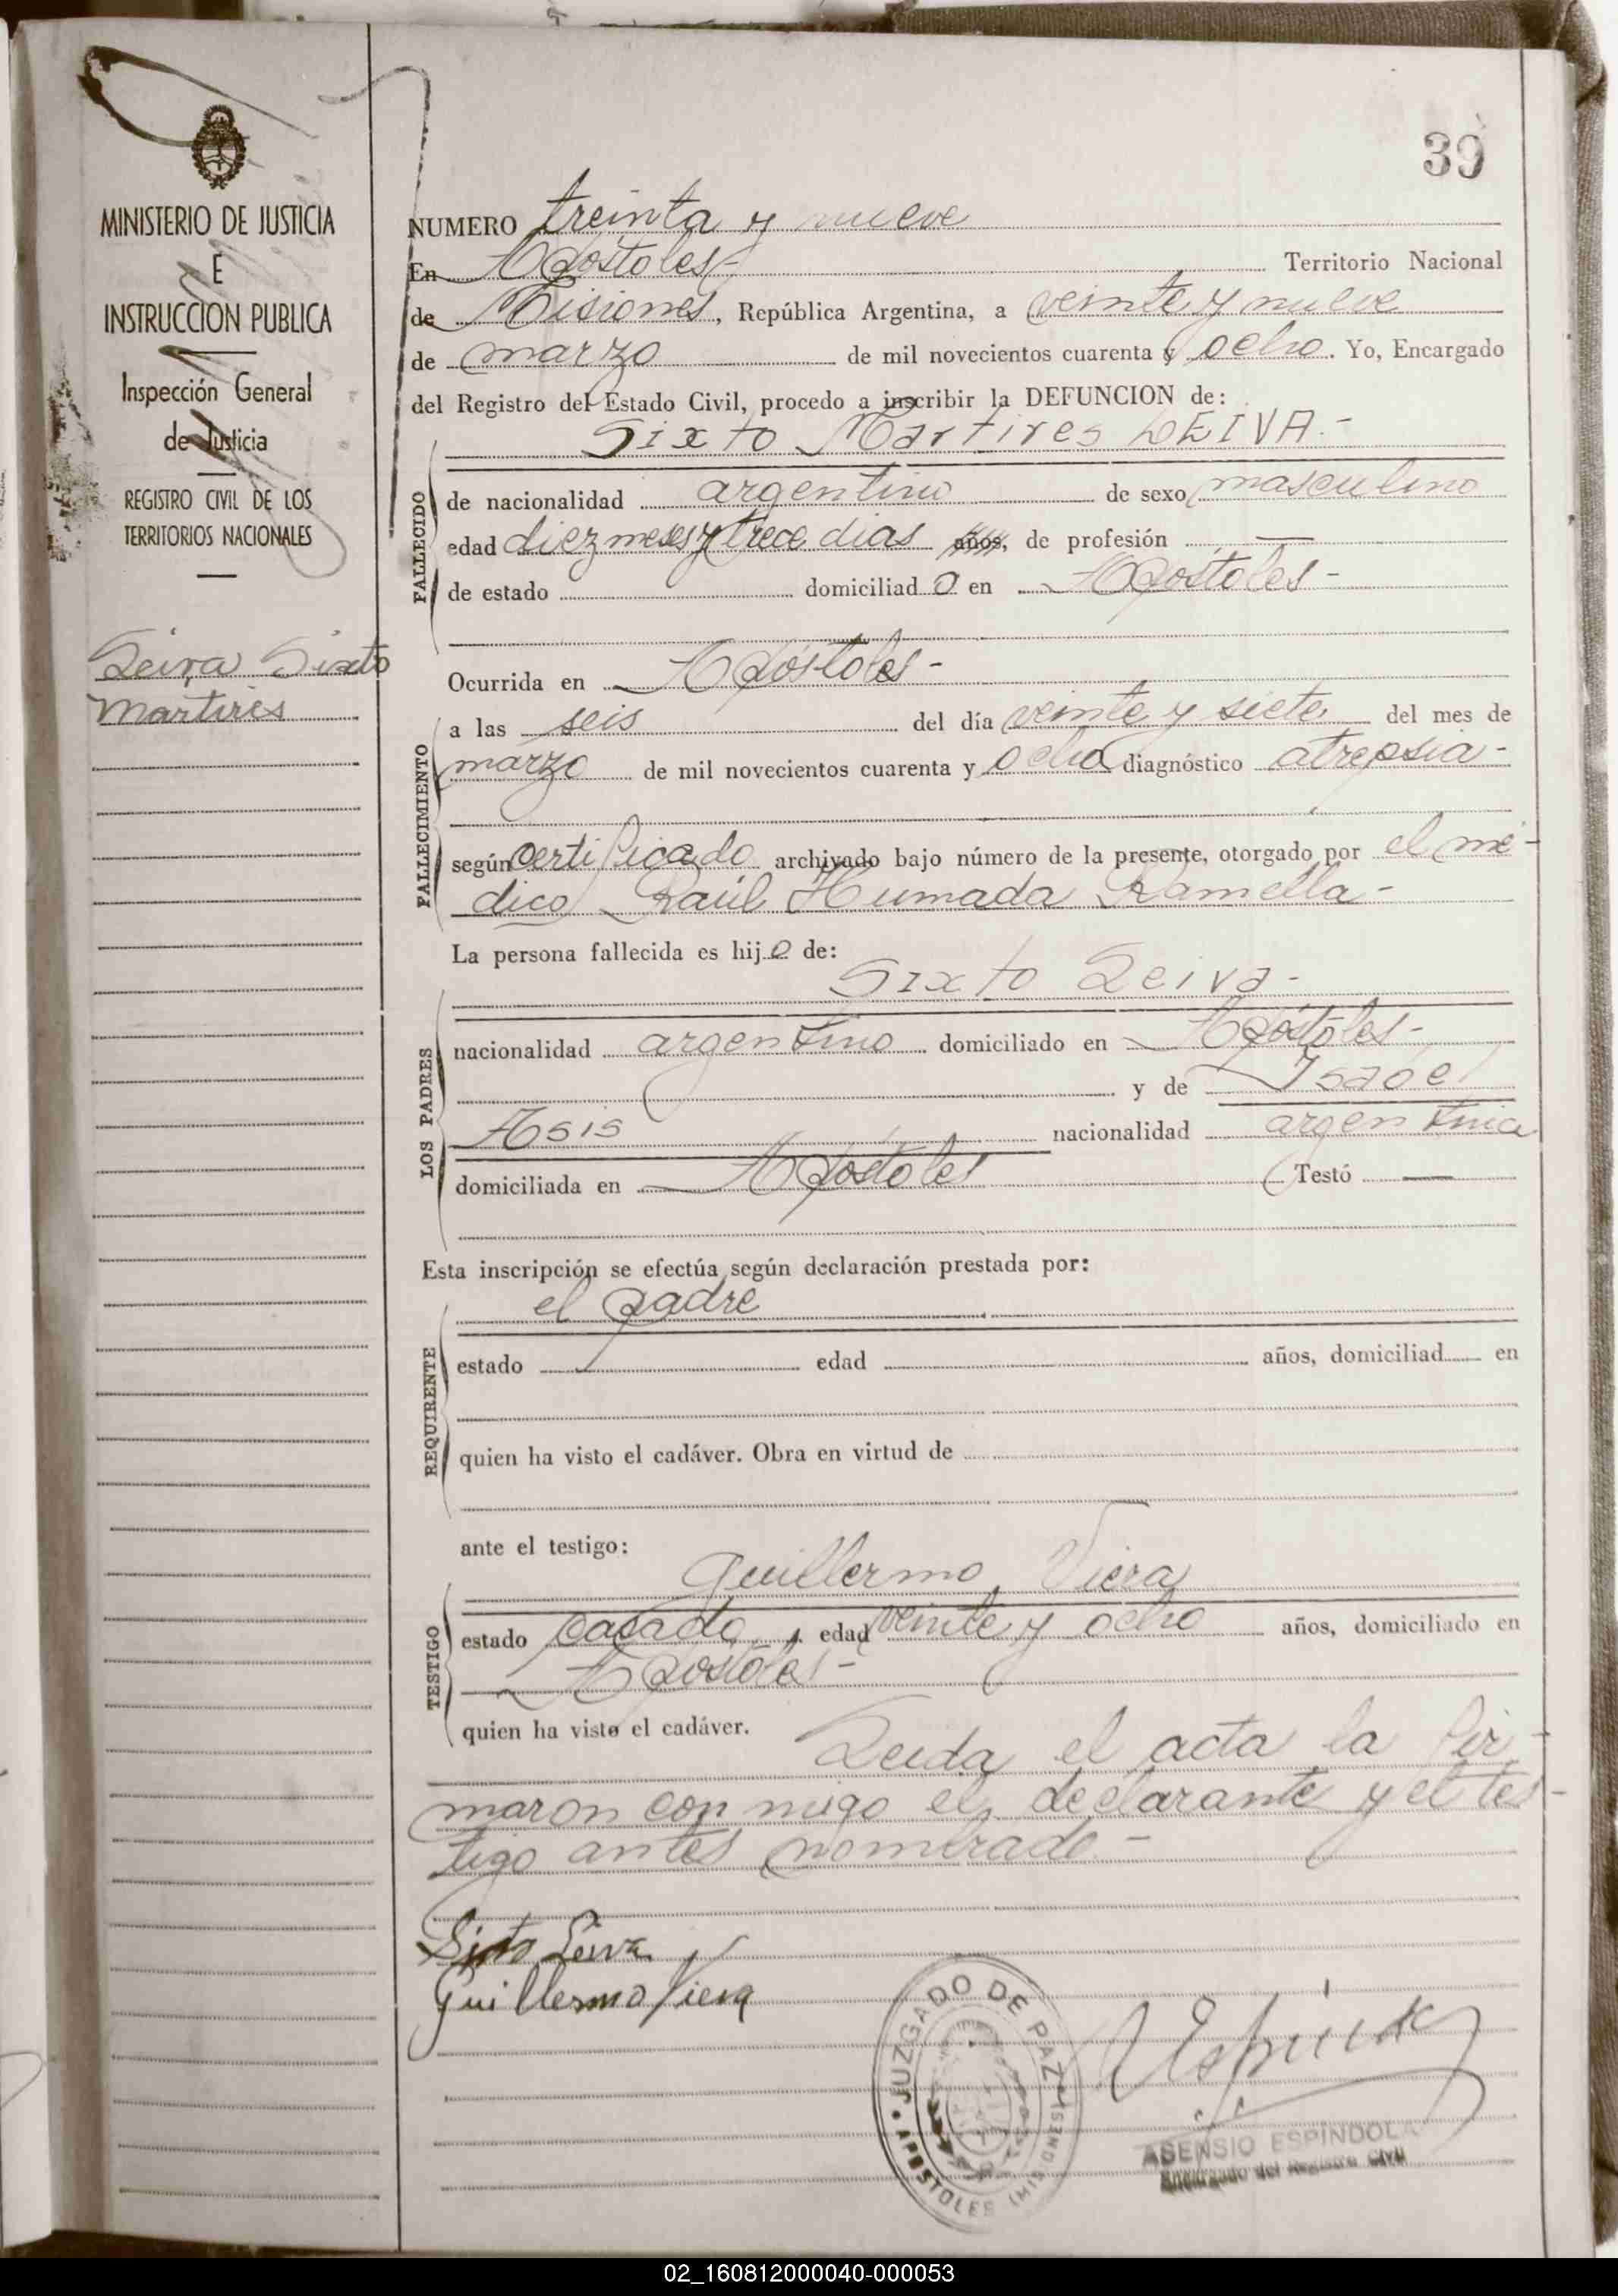 39
MINISTERIO DE JUSTICIA
E
INSTRUCCION PUBLICA
Inspección General
de Justicia
REGISTRO CIVIL DE LOS
TERRITORIOS NACIONALES
Leiva Sixto
Martires
NUMERO treinta y nueve
En Apóstoles Territorio Nacional
de Misiones, República Argentina, a veinte y nueve
de marzo de mil novecientos cuarenta y ocho. Yo, Encargado
del Registro del Estado Civil, procedo a inscribir la DEFUNCION de:
Sixto Martires LEIVA.-
FALLECIDO
de nacionalidad argentino de sexo masculino
edad diez meses y trece dias años, de profesión —
de estado domiciliado en Apóstoles-
FALLECIMIENTO
Ocurrida en Apóstoles-
a las seis del día veinte y siete del mes de
marzo de mil novecientos cuarenta y ocho diagnóstico atrepsia-
según certificado archivado bajo número de la presente, otorgado por el mé-
dico Raúl Humada Ramella-
La persona fallecida es hijo de:
Sixto Leiva-
LOS PADRES
nacionalidad argentino domiciliado en Apóstoles-
y de Isabel
Asis nacionalidad argentina
domiciliada en Apostoles Testó —
Esta inscripción se efectúa según declaración prestada por:
el padre
REQUIRENTE
estado edad años, domiciliad en
quien ha visto el cadáver. Obra en virtud de
ante el testigo:
Guillermo Viera
TESTIGO
estado casado, edad veinte y ocho años, domiciliado en
Apóstoles-
quien ha visto el cadáver. Leida el acta la fir-
maron con migo el declarante y el tes-
tigo antes nombrado-
Sixto Leiva
Guillermo Viera
JUZGADO DE PAZ
APOSTOLES (MISIONES)
ASENSIO ESPINDOLA
Encargado del Registro Civil
02_160812000040-000053